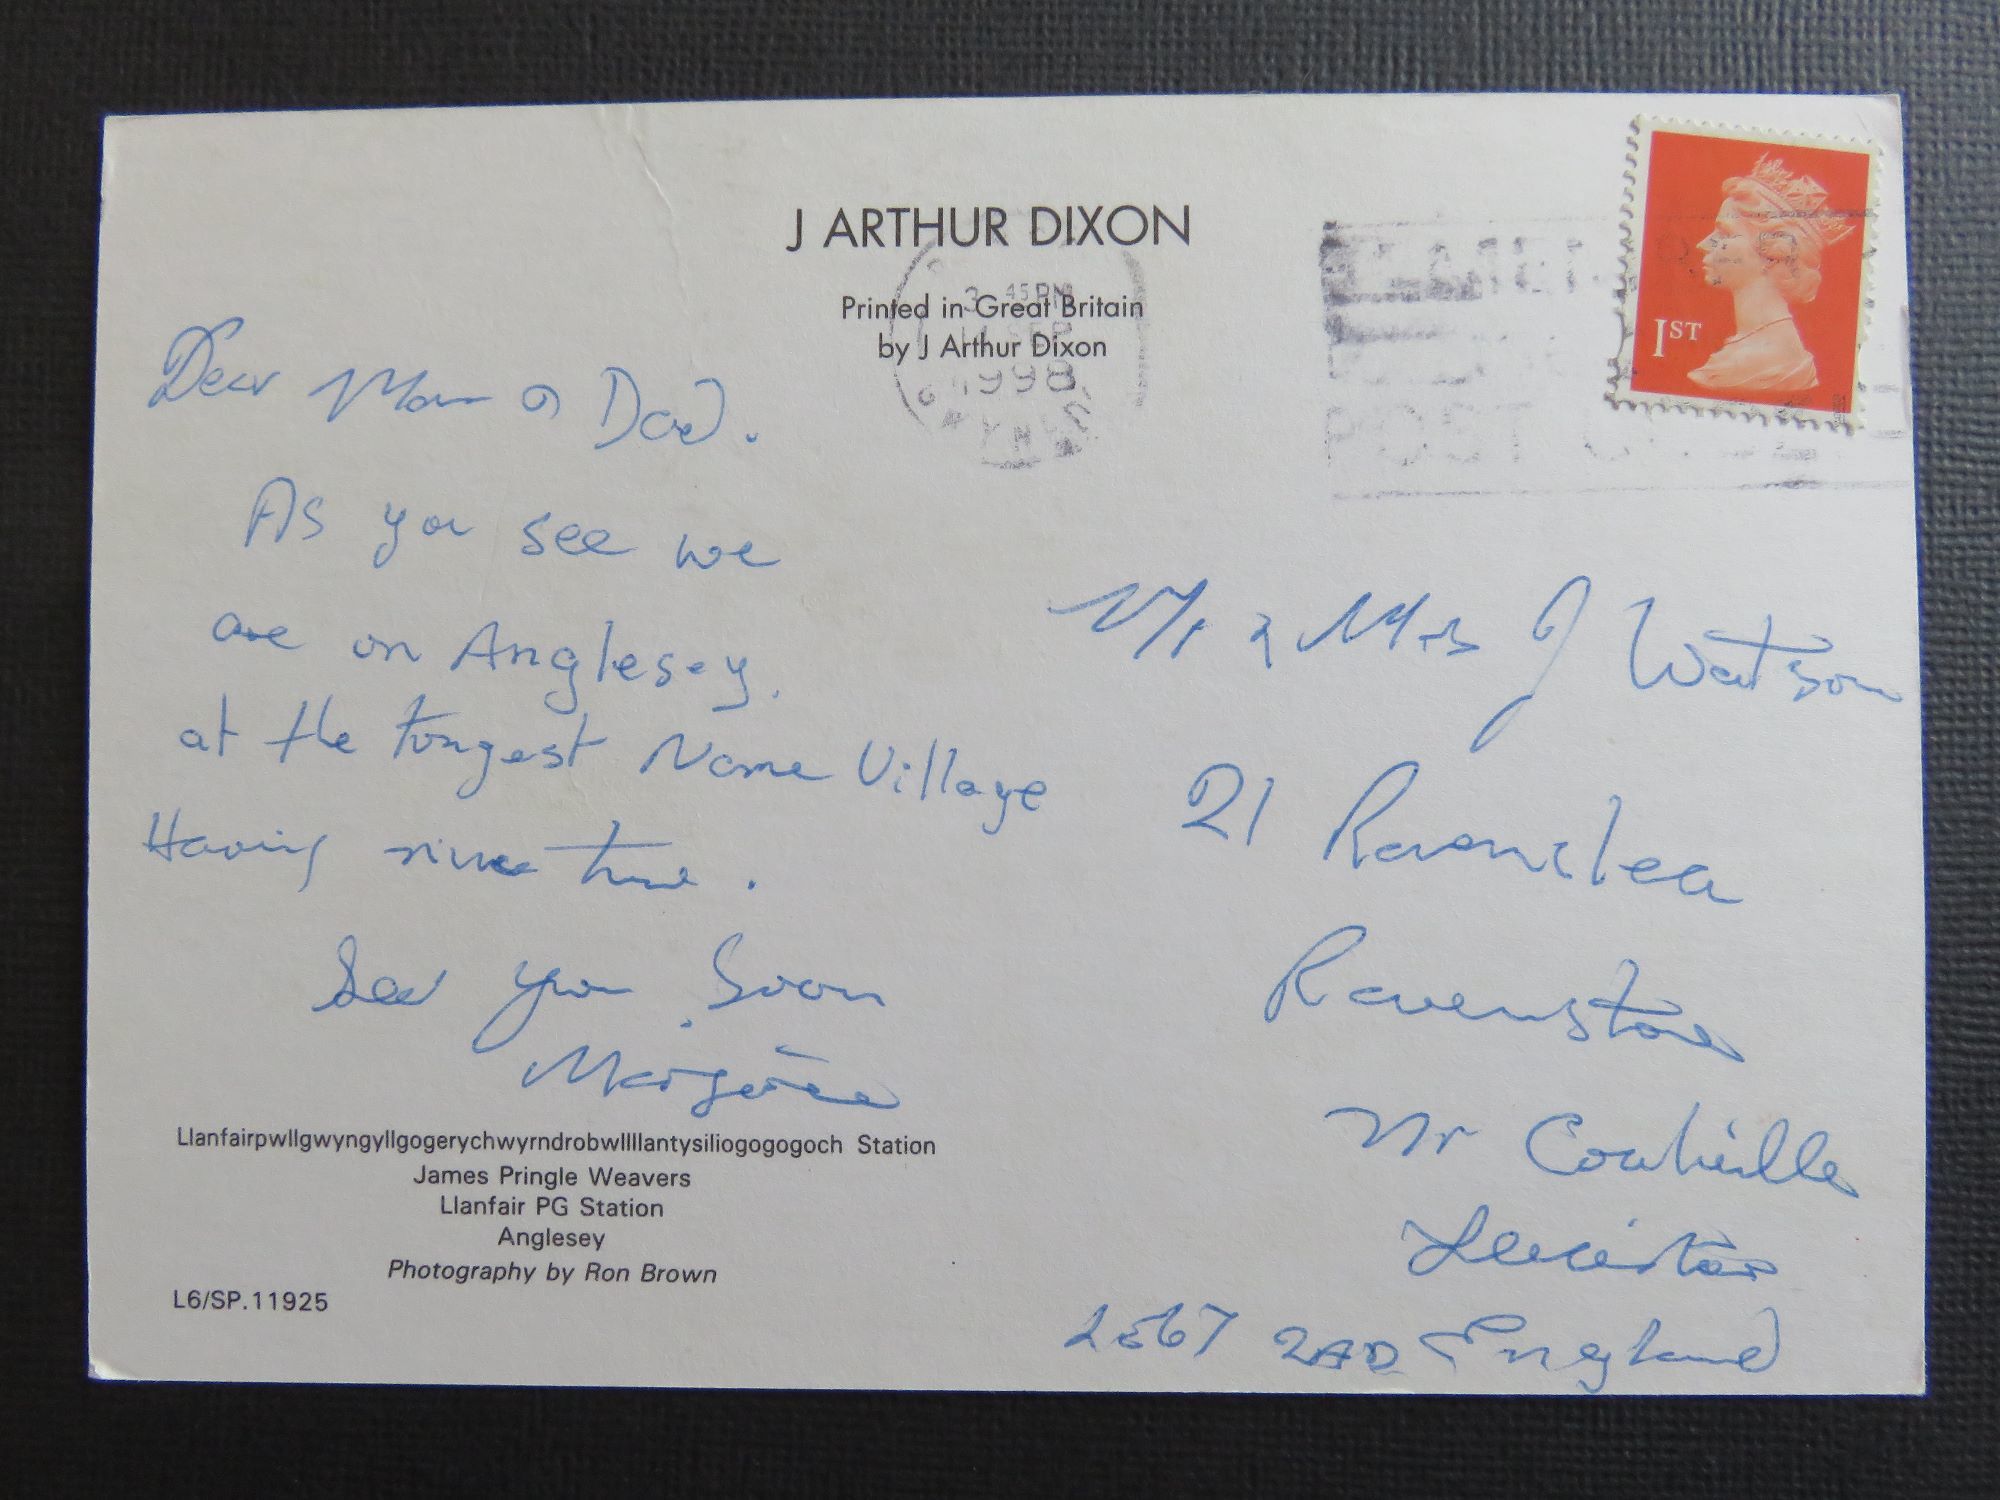 J ARTHUR DIXON
Printed in Great Britain
by J Arthur Dixon
3 45PM
SEP
1998
POST
1ST
Dear Mom & Dad.
As you see we
are on Anglesey.
at the longest Name Village
Having nice time.
See you Soon
Marjorie
Mr & Mrs J Watson
21 Ravenslea
Ravenstone
Nr Coalville
Leicester
LE67 2AD England
Llanfairpwllgwyngyllgogerychwyrndrobwllllantysiliogogogoch Station
James Pringle Weavers
Llanfair PG Station
Anglesey
Photography by Ron Brown
L6/SP.11925